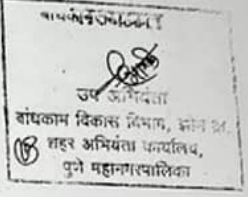 उप अभियंता
बांधकाम विकास विभाग, झोन क्र.
शहर अभियंता कार्यालय,
पुणे महानगरपालिका